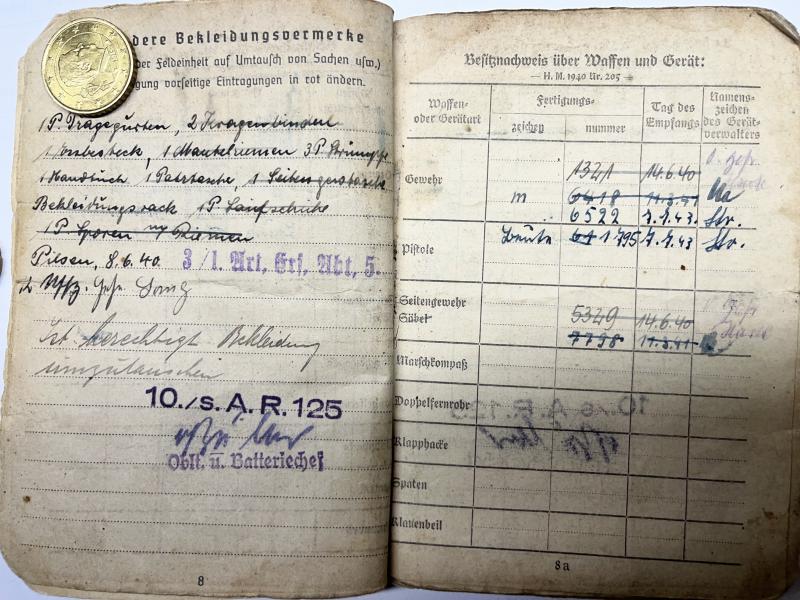 dere Bekleidungsvermerke
der Feldeinheit auf Umtausch von Sachen usw.)
gung vorseitige Eintragungen in rot ändern.
1 P Tragegurten, 2 Kragenbinden
1 Essbesteck, 1 Mantelriemen 3 P Strümpfe
1 Handtuch 1 Patrtasche, 1 Seitengewtasche
Bekleidungssack 1 P Laufschuhe
1 P Sporen Riemen
Pilsen, 8.6.40. 3/l. Art. Ers. Abt. 5.
Ist berechtigt Bekleidung
umzutauschen
10./s. A. R. 125
Oblt. u. Batteriechef
8
Besitznachweis über Waffen und Gerät:
— H. M. 1940 Nr. 205 —
Waffen- oder Gerätart
Fertigungs-
zeichen
nummer
Tag des Empfangs
Namenszeichen des Gerätverwalters
Gewehr
1321 14.6.40
m 6418 11.3.41
6522 7.7.43. Str.
Pistole
Beute 61795 7.7.43 Str.
Seitengewehr
Säbel
5349 14.6.40
7798 11.3.41
Marschkompaß
Doppelfernrohr
Klapphacke
Spaten
Klauenbeil
8a